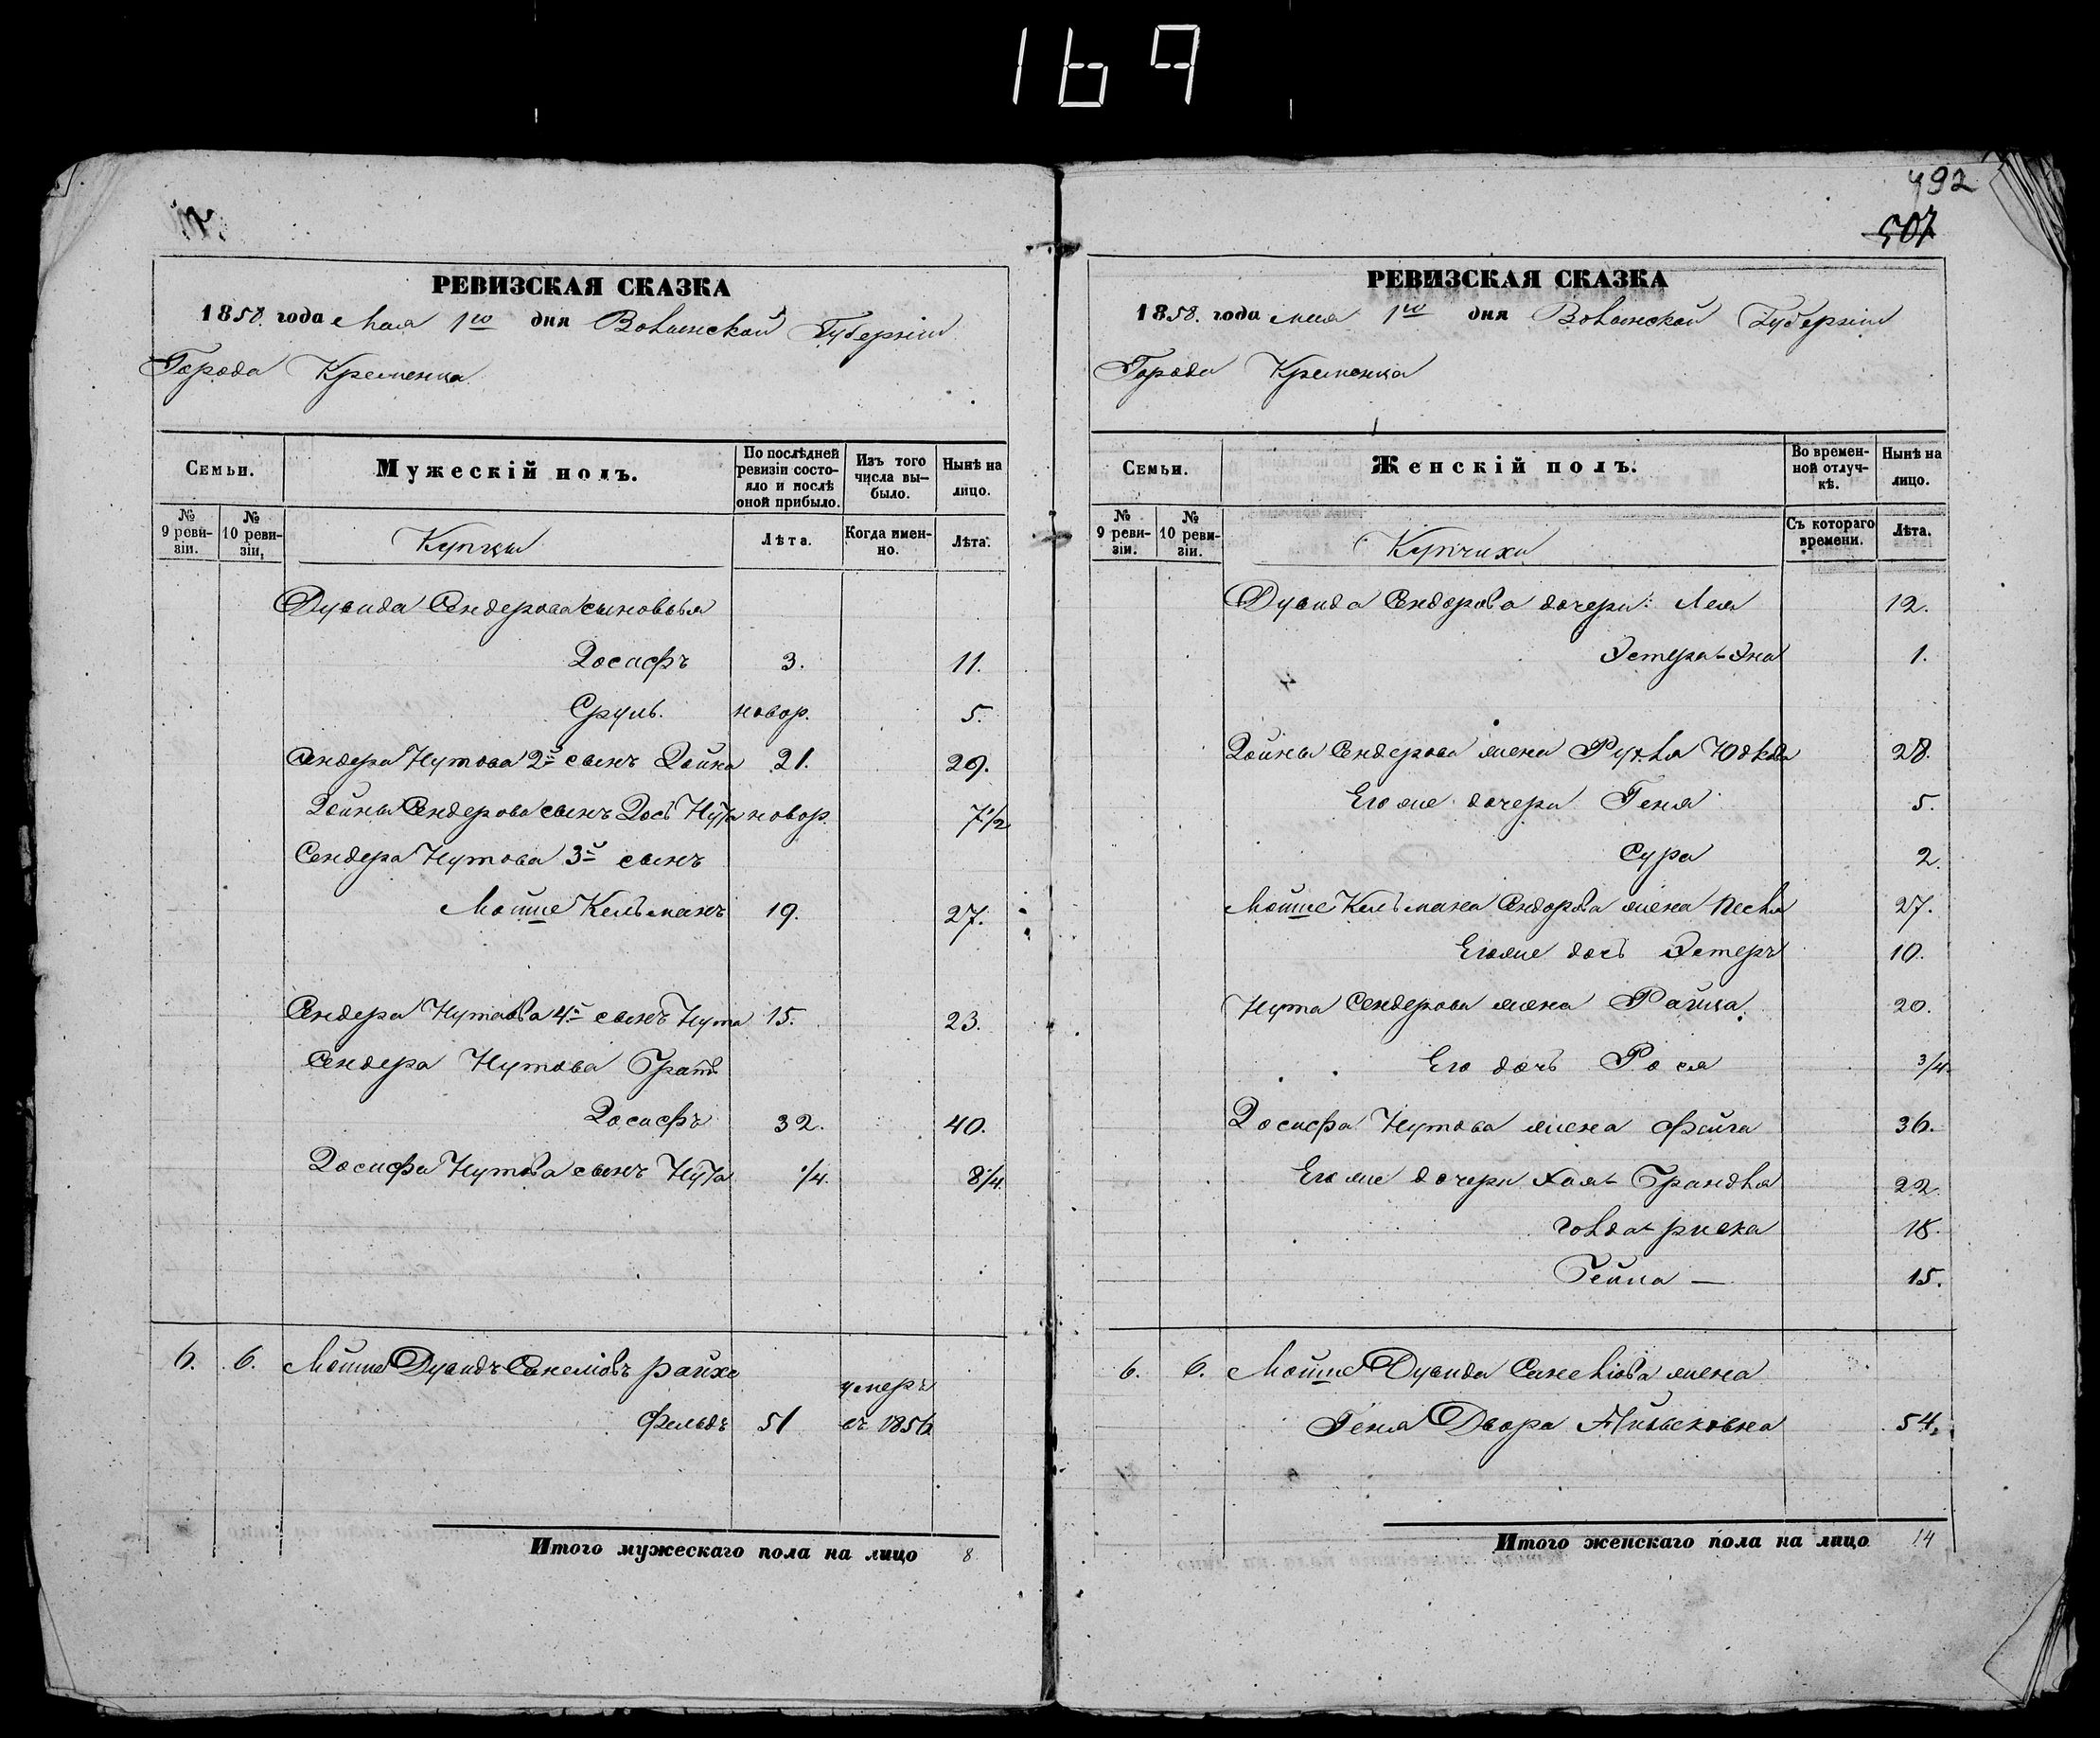 169
РЕВИЗСКАЯ СКАЗКА
1858. года Мая 1го дня Волынской Губерніи
Города Кременца
Семьи.
Мужескій полъ.
По послѣдней ревизіи состояло и послѣ оной прибыло.
Изъ того числа выбыло.
Нынѣ на лицо.
№ 9 ревизіи.
№ 10 ревизіи,
Купцы
Лѣта.
Когда именно.
Лѣта.
Дувида Сендерова сыновья
Іосифъ 3. 11.
Сруль. новор. 5.
Сендера Нутова 2й сынъ Іойна 21. 29.
Іойны Сендерова сынъ Іось Нута новор. 7 1/2
Сендера Нутова 3й сынъ
Мошше Кельманъ 19. 27.
Сендера Нутова 4й сынъ Нута 15. 23.
Сендера Нутова братъ
Іосифъ 32. 40.
Іосифа Нутова сынъ Нута 1/4. 8 1/4.
6. 6. Мошше Дувидъ Райхе
фельдъ 51 умеръ въ 1856
Итого мужескаго пола на лицо 8.
492
507
РЕВИЗСКАЯ СКАЗКА
1858. года мая 1го дня Волынской Губерніи
Города Кременца
Семьи.
Женскій полъ.
Во временной отлучкѣ.
Нынѣ на лицо.
№ 9 ревизіи.
№ 10 ревизіи.
Купчихи
Съ котораго времени.
Лѣта.
Дувида Сендерова дочери: Лея 12.
Эстера- 1.
Іойны Сендерова жена Рухля Юдкова 28.
Его же дочери Геня 5.
Сура 2.
Мошше Кельмана Сендерова жена Песля 27.
Его же дочь Эстеръ 10.
Нута Сендерова жена Райца. 20.
Его дочь Рося 3/4.
Іосифа Нутова жена Фейга 36.
Его же дочери Хая-Брандля 22.
Голда-риска 18.
15.
6. 6. Мошше Дувида жена
Геня Двора 54.
Итого женскаго пола на лицо 14